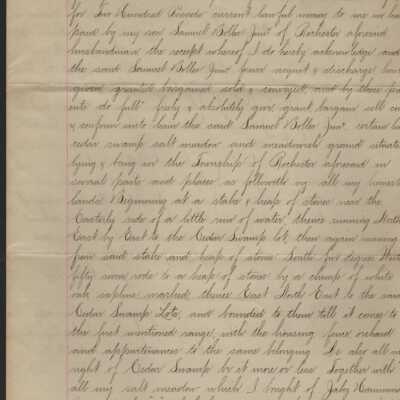 for Two Hundred Pounds current lawful money to me in hand
paid by my son Samuel Bolles Junr of Rochester aforesaid
husbandman the receipt whereof I do hereby acknowledge and
the said Samuel Bolles Junr forever acquit & discharge have
given granted bargained sold & conveyed and by these pres
ents do fully freely & absolutely give grant bargain sell con
& confirm unto him the said Samuel Bolles Junr certain
cedar swamp salt meadow and meadowish ground situate
lying & being in the Township of Rochester aforesaid in
several parts and places as followeth viz all my homest
lands Beginning at a stake & heap of stones near the
Easterly side of a little run of water thence running North
East by East to the Cedar Swamp lot, then again running
from said stake and heap of stones South five degrees
fifty seven rods to a heap of stones by a clump of white
oak saplins marked thence East North East to the
Cedar Swamp Lots, and bounded by them till it comes to
the first mentioned range, with the housing fence orchard
and appurtenances to the same belonging. To also all my
right of Cedar Swamp be it more or less Together with
all my salt meadow which I bought of Jabez